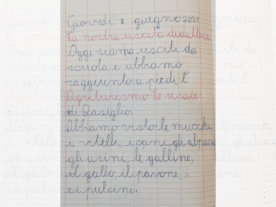 Giovedì 8 giugno 2023
La nostra uscita didattica
Oggi siamo usciti da
scuola e abbiamo
raggiunto a piedi l'
Agriturismo le
di Basiglio.
Abbiamo visto le mucche
i vitelli, i cani, gli alpaca
gli asini, le galline,
il gallo, il pavone,
e i pulcini.